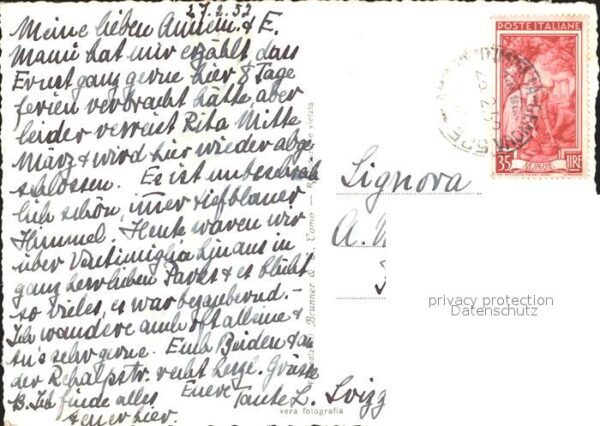 27.2.53
Meine lieben Annien & E.
Mami hat mir erzählt dass
Ernst ganz gerne hier 8 Tage
ferien verbracht hätte, aber
leider verreist Rita Mitte
März & wird hier wieder abge-
schlossen. Es ist unbeschreib-
lich schön, immer tiefblauer
Himmel. Heute waren wir
über Ventimiglia hinaus in
ganz herrlichen Parks & es blüht
so vieles, es war bezaubernd. -
Ich wandere auch oft alleine &
tu's sehr gerne. Euch Beiden & an
der Rehalpstr. recht herzl. Grüsse
Euere Tante L.
B. Ich finde alles
teuer hier.
Signora
A. M
Svizz
POSTE ITALIANE
35 LIRE
Brunner & Como
vietata
vera fotografia
privacy protection
Datenschutz